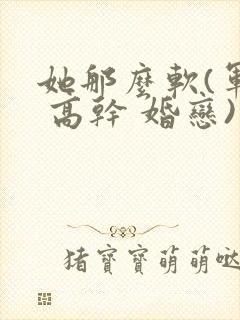 她那麼軟(軍
高幹 婚戀)
豬寶寶萌萌噠